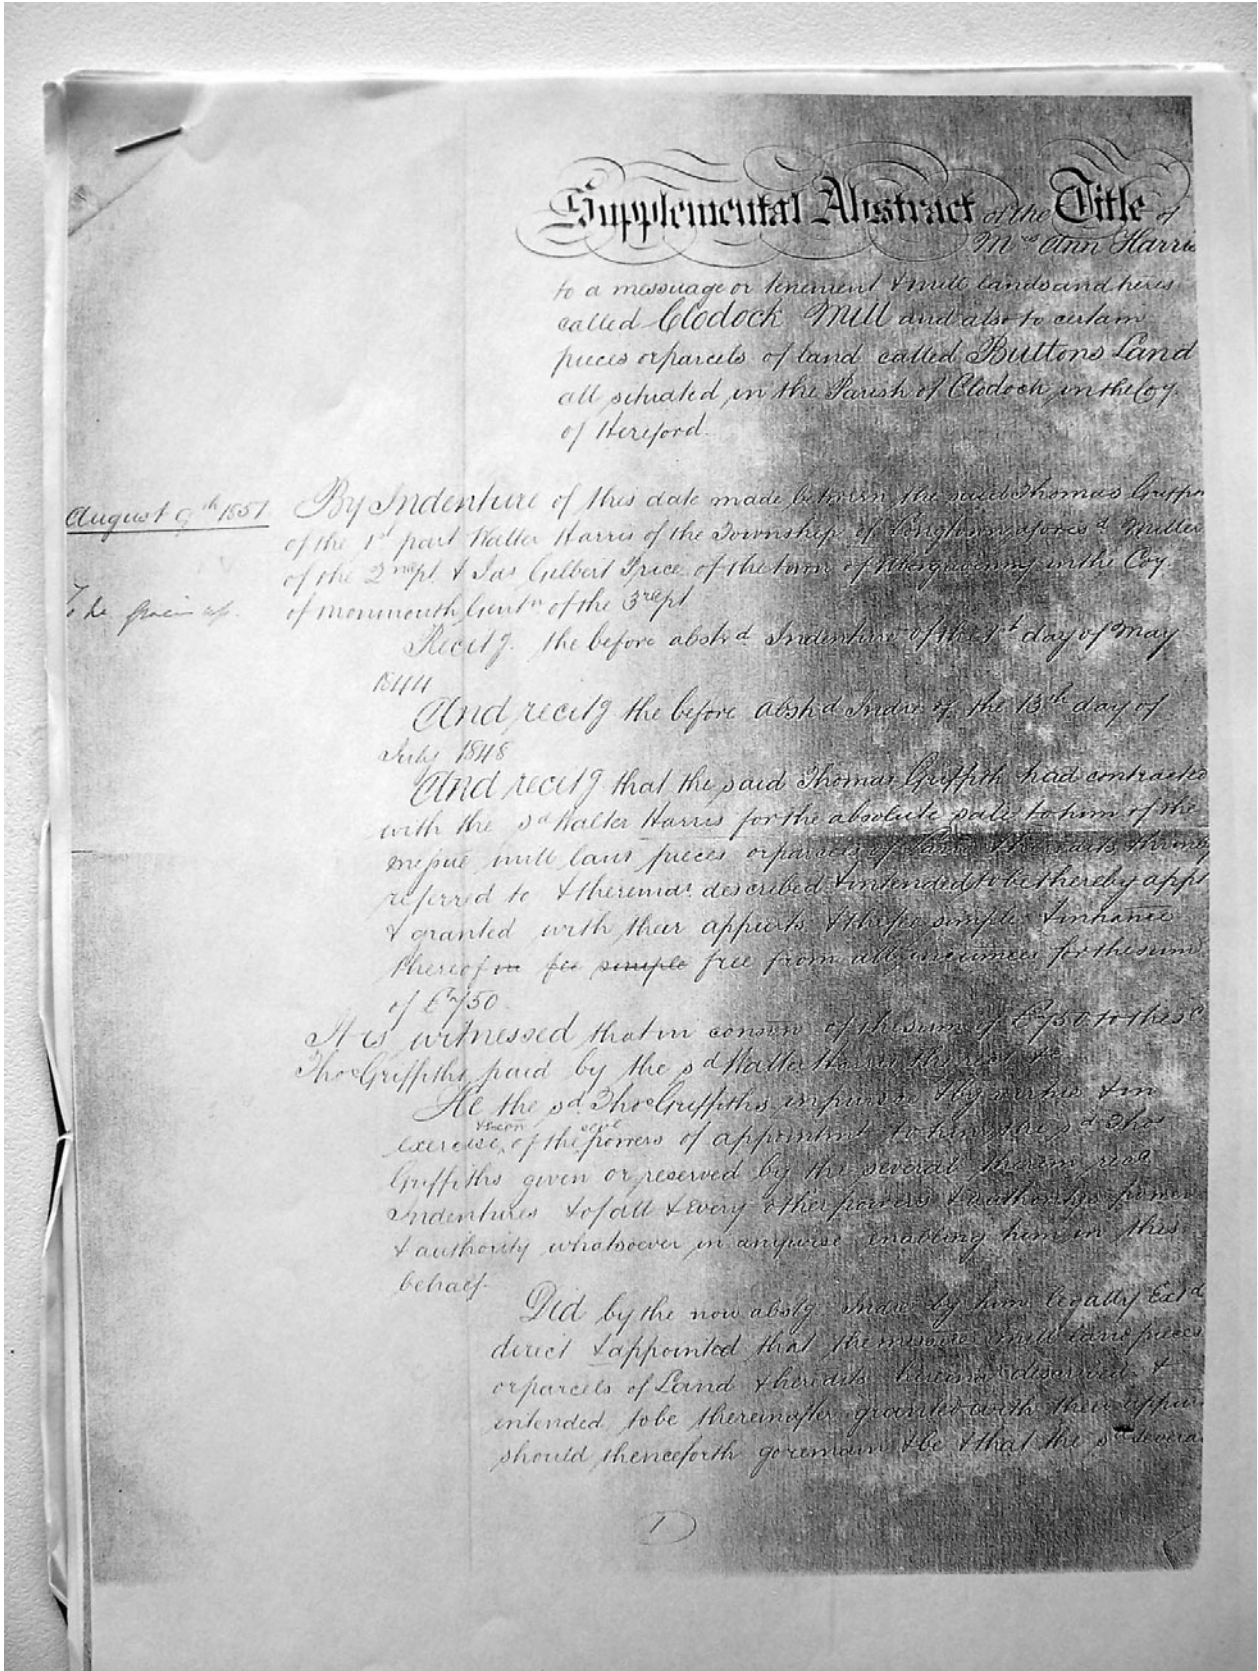 Supplemental Abstract of the Title of
Mrs Ann Harris
to a messuage or tenement & mill lands and heres
called Clodock Mill and also to certain
pieces or parcels of land called Buttons Land
all situated in the Parish of Clodock in the Coy.
of Hereford.
August 9th 1851
By Indenture of this date made between the said Thomas Griffi
of the 1st part Walter Harris of the Township of Longtown aforesd Miller
of the 2nd pt & Jas Gilbert Price of the town of Abergavenny in the Coy.
To be
of Monmouth Gentn of the 3rd pt
Recitg. the before abstrd Indenture of the 1st day of May
1844
And recitg the before abstrd Indre of the 13th day of
July 1848
And recitg that the said Thomas Griffith had contracted
with the sd Walter Harris for the absolute sale to him of the
messue mill land pieces or parcels of Land & heredits
referred to & thereinar. described & intended to be thereby appt
& granted with their appurts & the fee simple & inhance
thereof in fee simple free from all incumces for the sum
of £750
It is witnessed that in conson of the sum of £750 to the sd
Thos Griffiths paid by the sd Walter Harris the rect &c
He the sd. Thos Griffiths in pursce & by virtue & in
exercise & exon of the sevl powers of appointmt to him the sd Thos
Griffiths given or reserved by the several therein recd
Indentures & of all & every other powers & authorities power
& authority whatsoever in anywise enabling him in this
behalf.
Did by the now abstg Indre by him legally Exd
direct & appointed that the messue mill land pieces
or parcels of Land & heredits described &
intended to be thereinafter granted with their appur
should thenceforth go remain & be & that the sd several
1